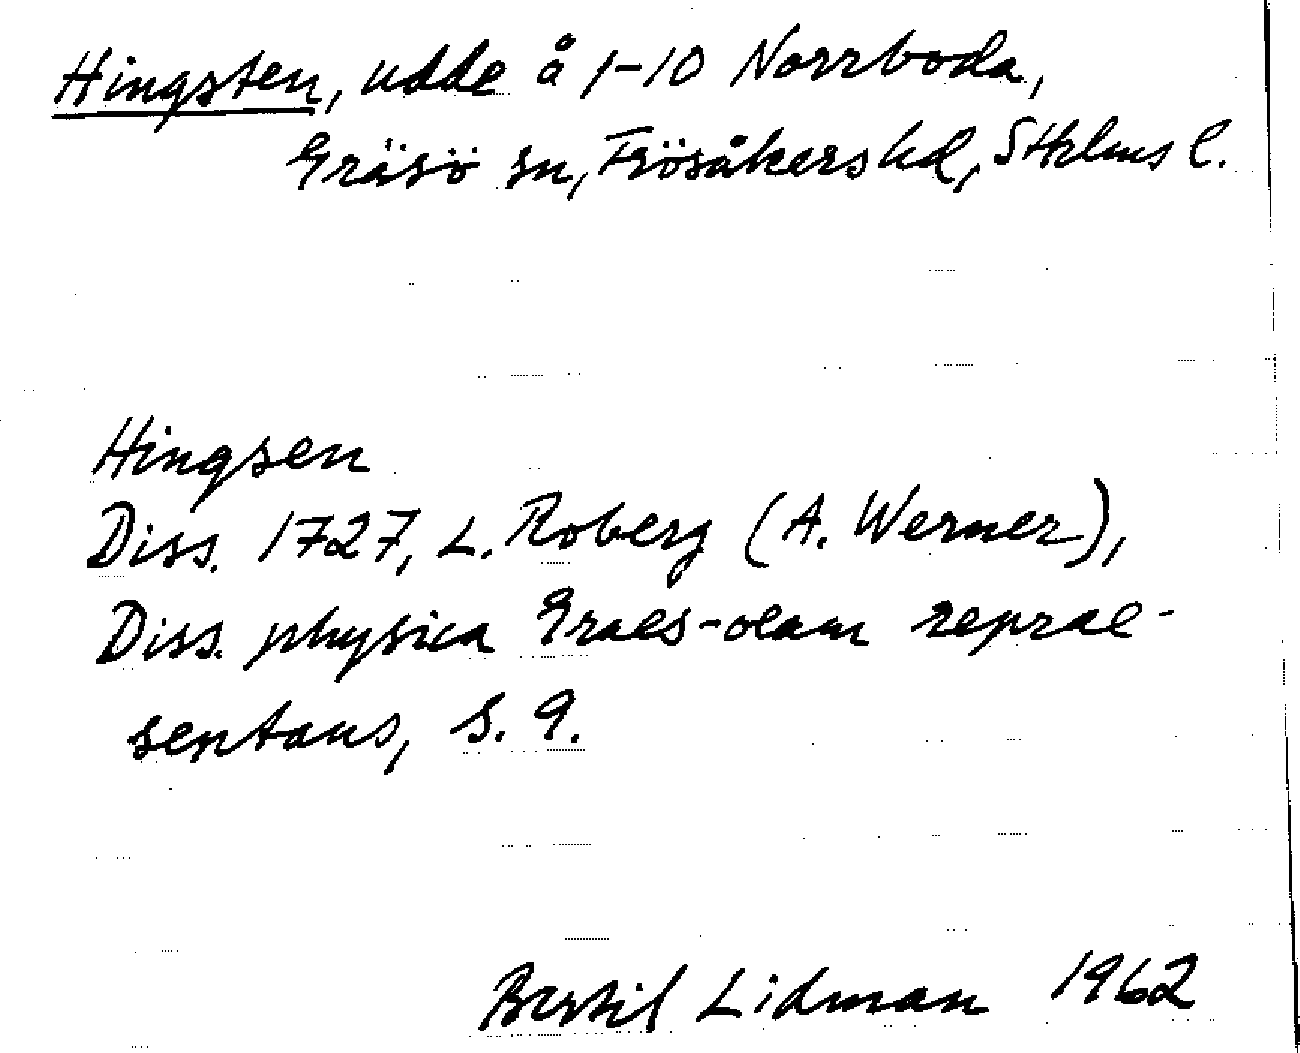 Hingsten, udde å 1-10 Norrboda,
Gräsö sn, Frösåkers hd, Sthlms l.
Hingsen
Diss. 1727, L. Roberg (A. Werner),
Diss. physica Graes-oeam reprae-
sentans, S. 9.
Bertil Lidman 1962